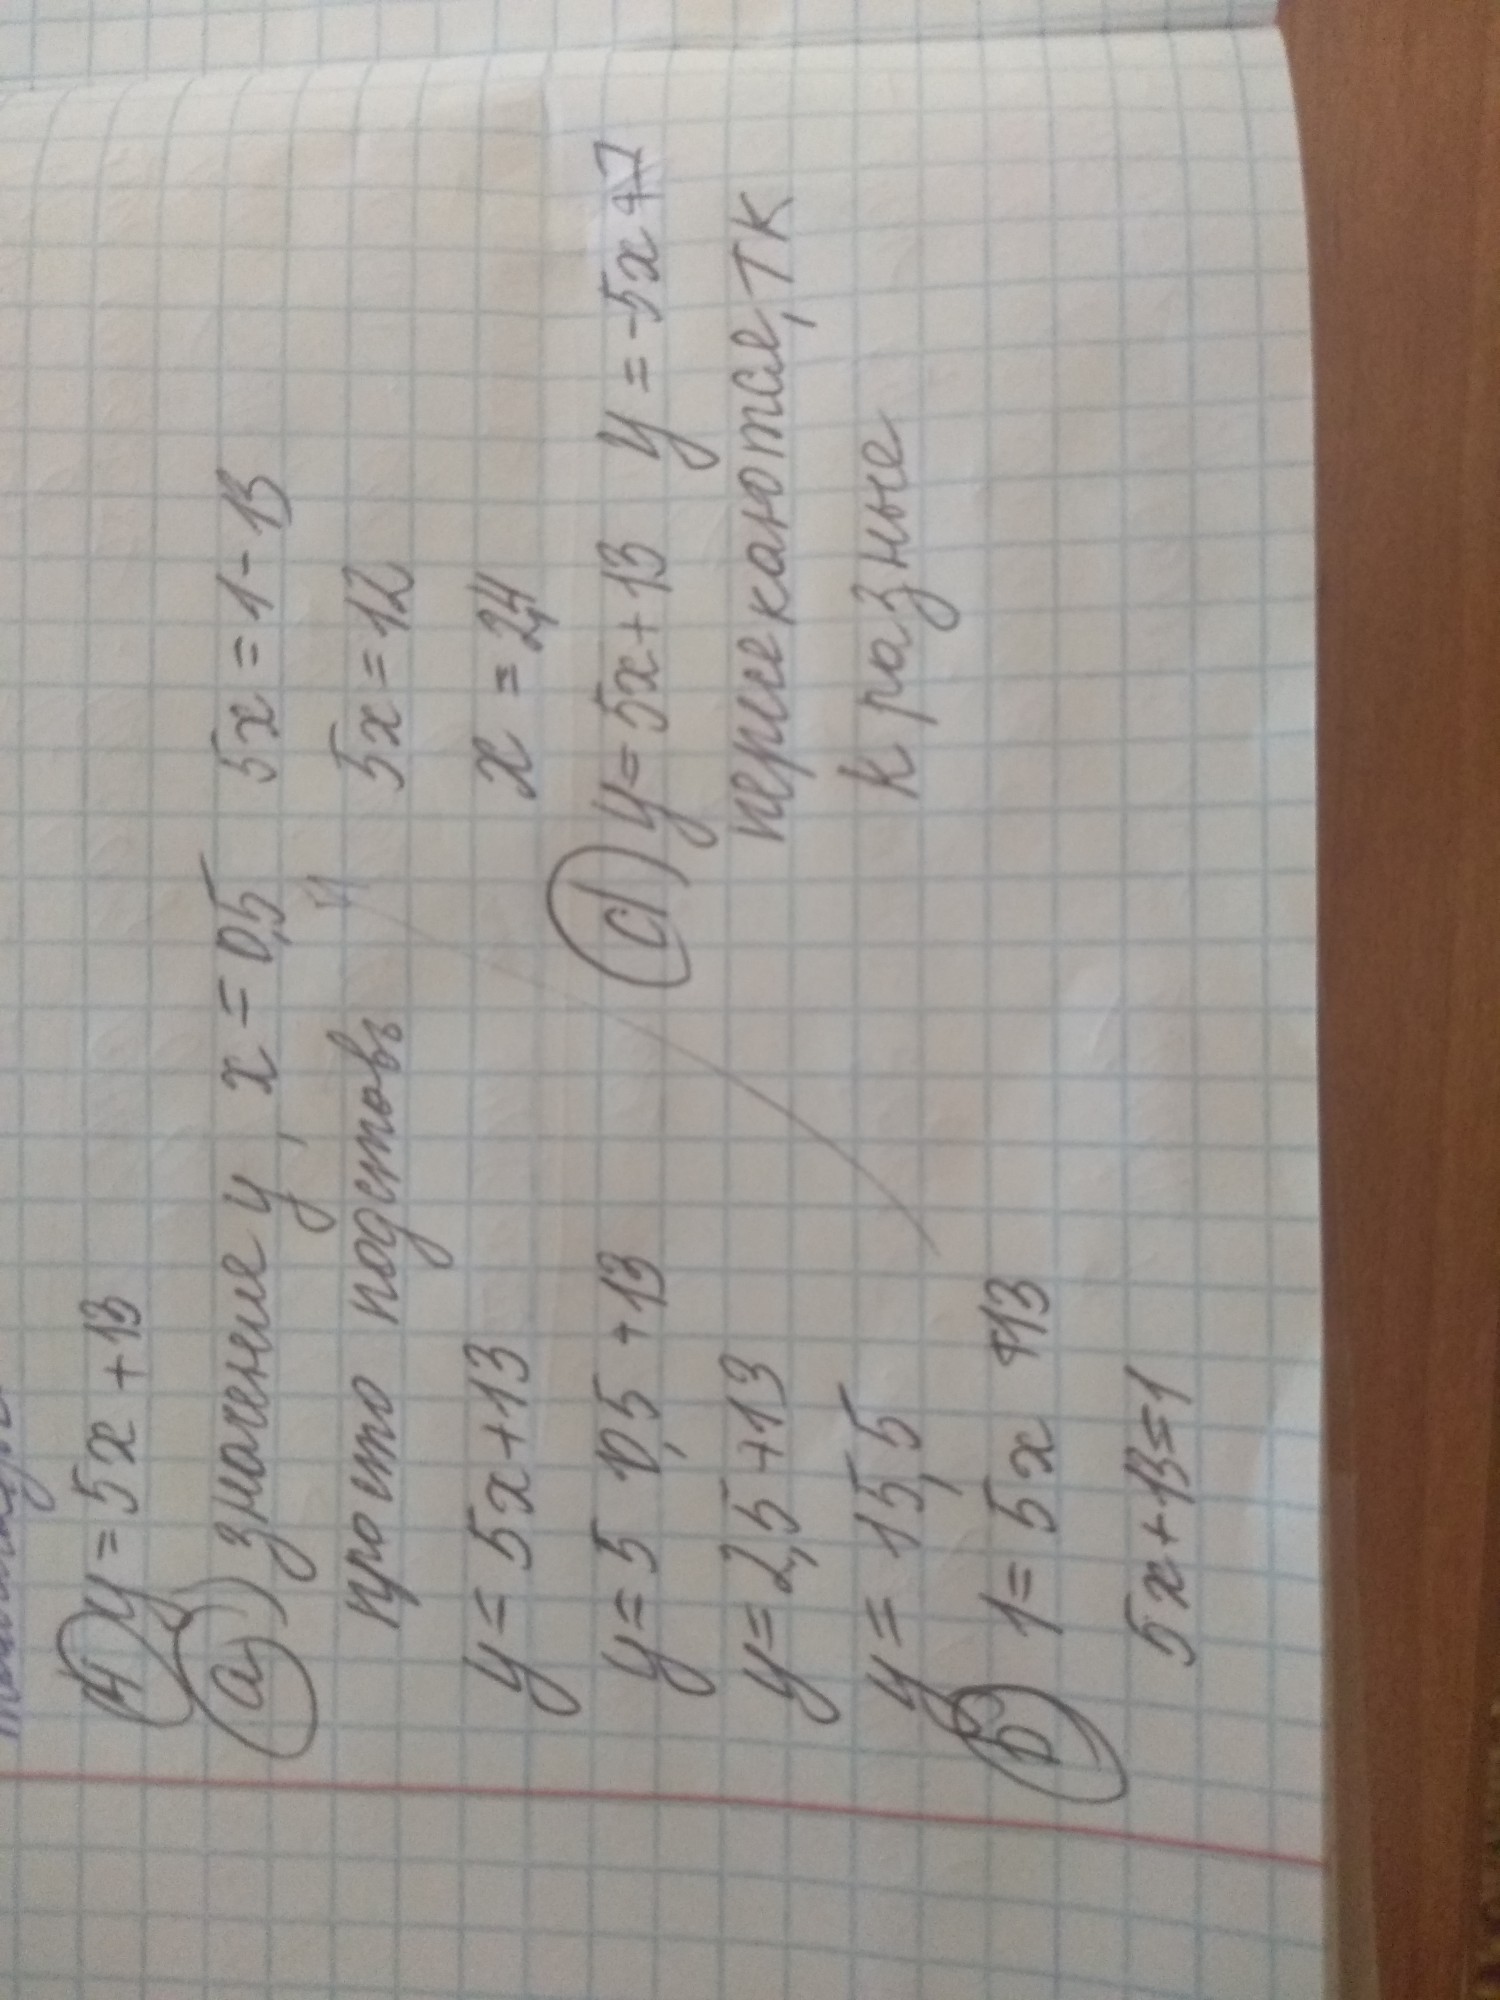 14) y = 5x + 13
a) значение y, x = 0,5
просто подставь
y = 5x+13
y = 5 0,5 +13
y = 2,5+13
y = 15,5
b) 1 = 5x +13
5x+13=1
5x = 1-13
5x = 12
x = 2,4
c) y = 5x+13 y = -5x+7
к разные